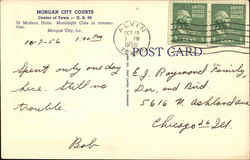 MORGAN CITY COURTS
Center of Town — U. S. 90
35 Modern Units. Moonlight Cafe in connection.
Morgan City, La.
10-7-56 1:00 PM
ALVIN
OCT 10
1 PM
1956
POST CARD
Spent only one day
here. Still no
trouble.
Bob
E. J. Raymond Family,
Dor, and Bird
5616 N. Ashland Ave
Chicago 26 Ill.